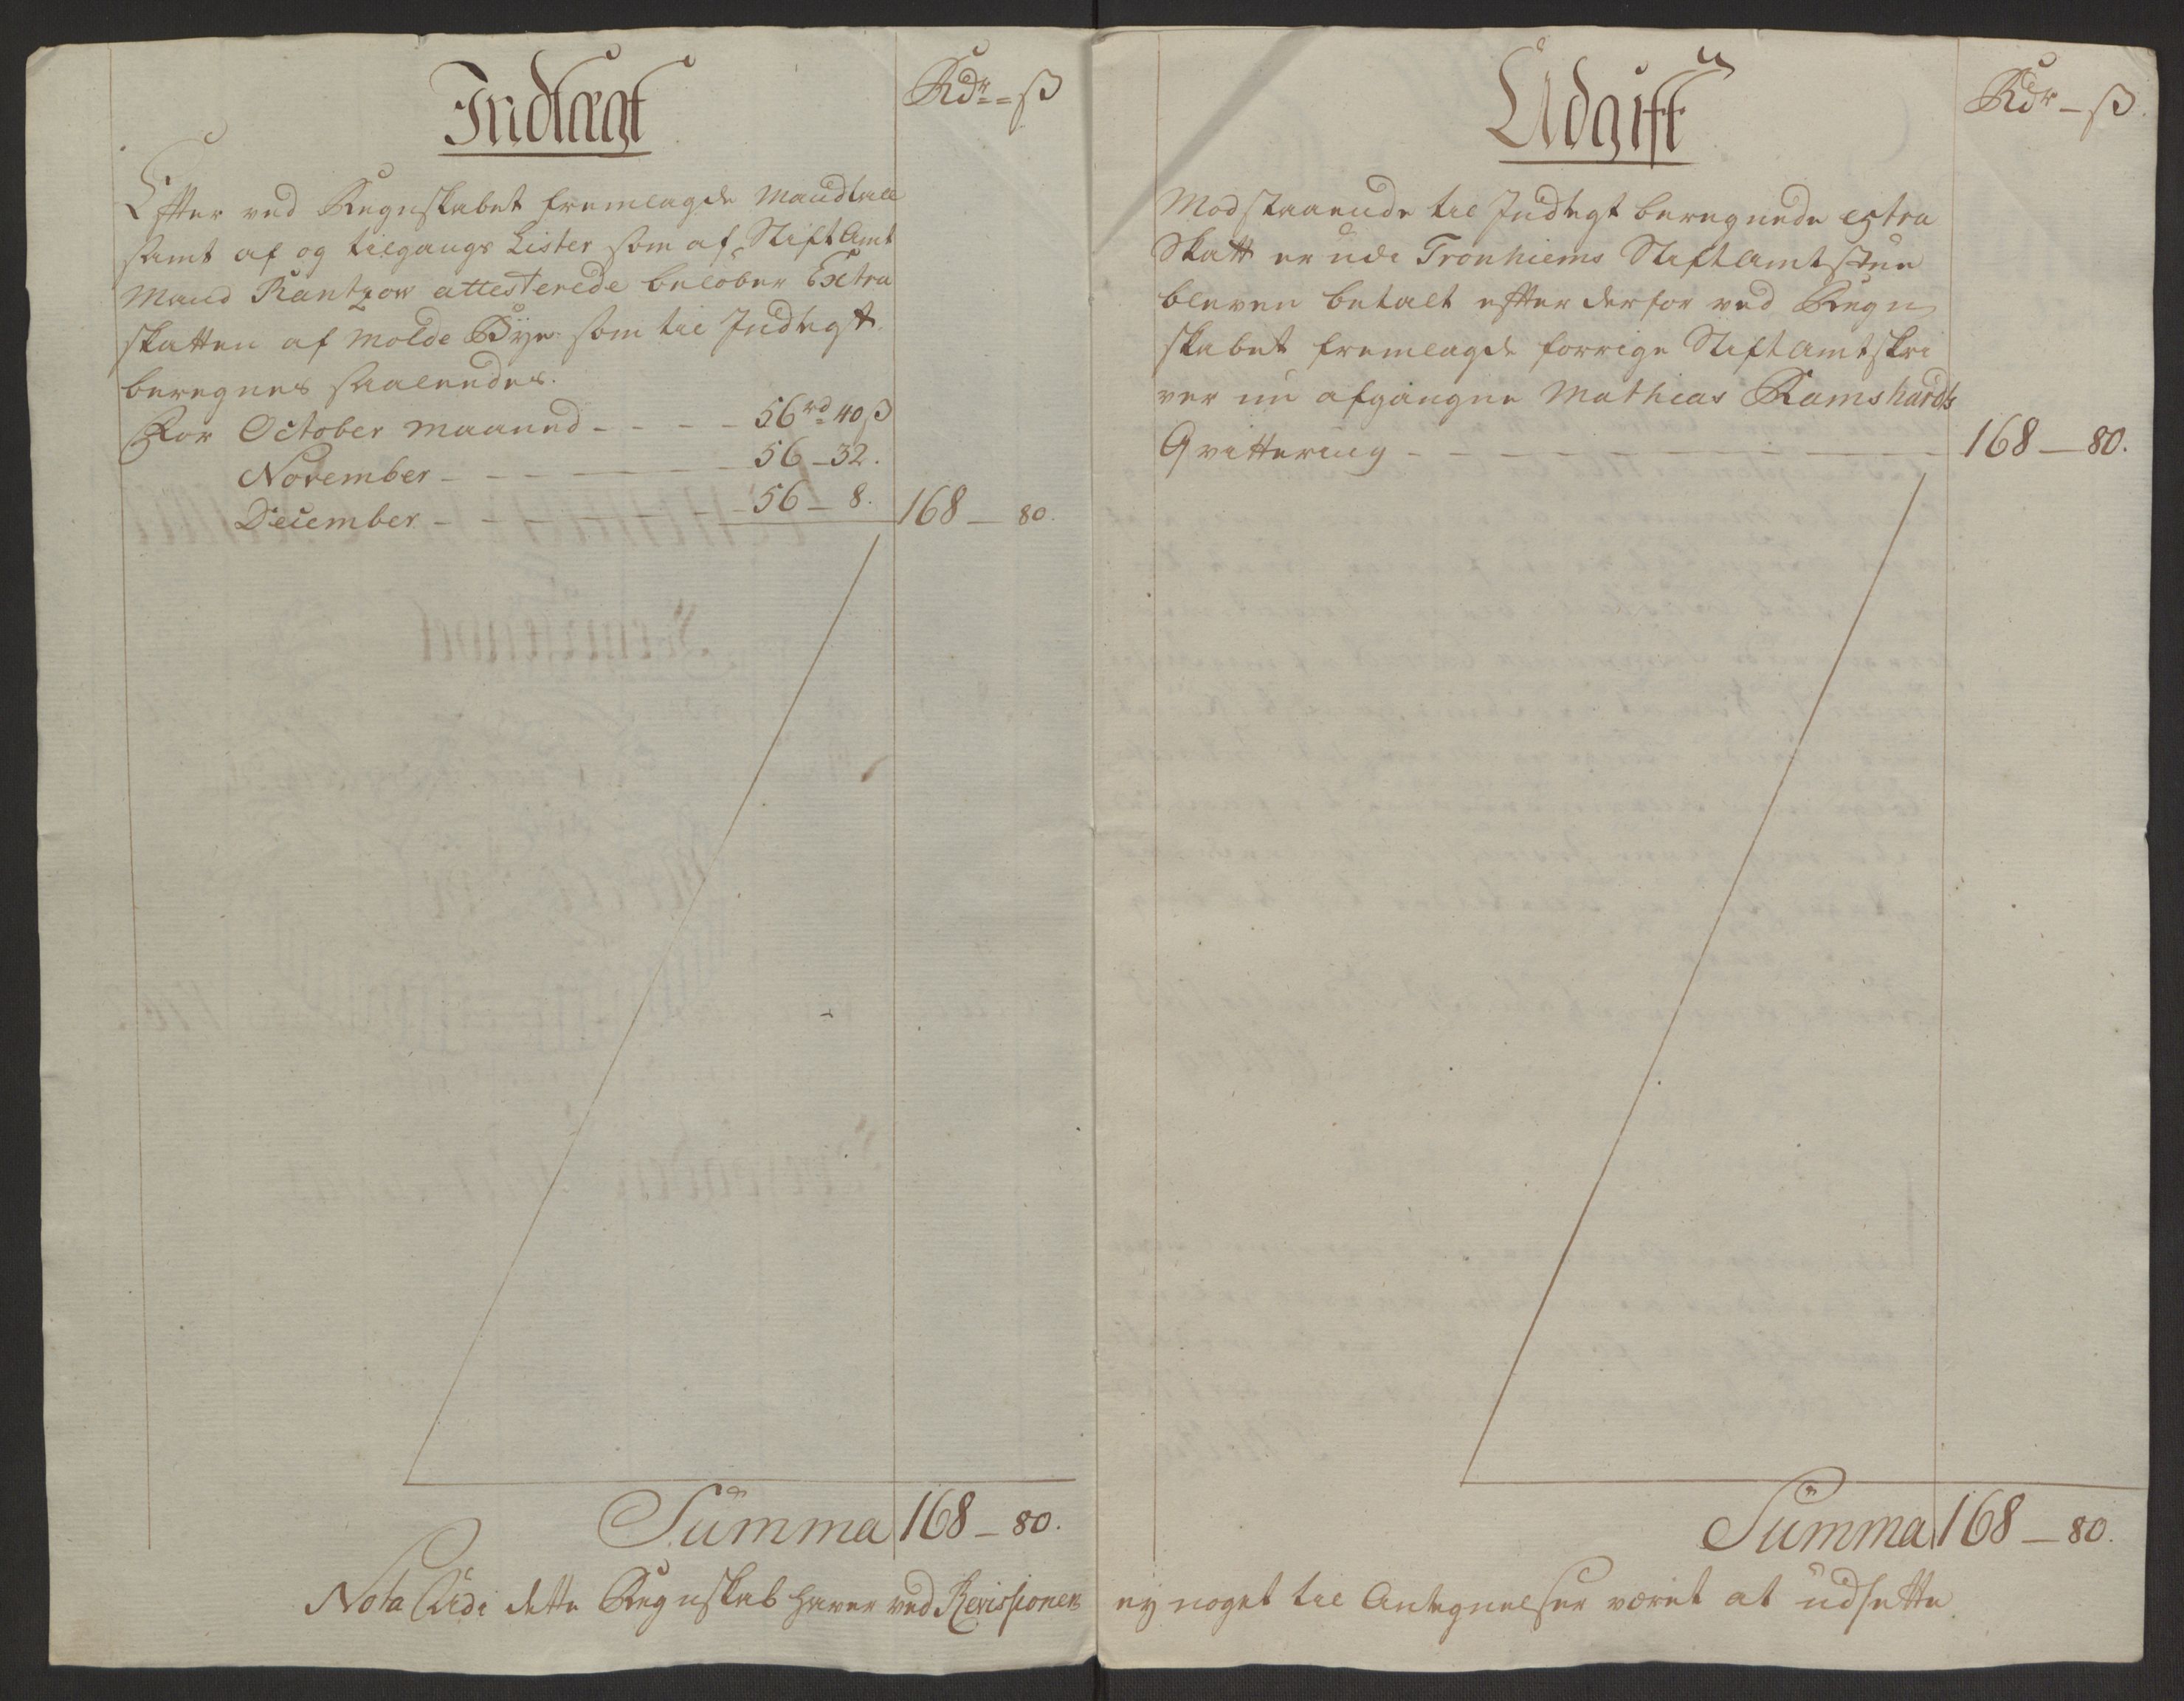 Indtægt
Rdr - ß
Efter ved Regnskabet fremlagde Mandtall
samt af og tilgangs Lister som af StiftAmt
Mand Rantzow attesterede beløber Extra
skatten af Molde Bye som til Indtegt
beregnes saaledes.
For October Maaned - - - - 56 rd 40 ß
November - - - - - - 56 - 32.
December - - - - - - 56 - 8. 168 - 80.
Summa 168 - 80.
Udgift
Rdr - ß.
Modstaaende til Indtegt beregnede extra
Skatt er udi Tronhiems StiftAmtstue
bleven betalt efter derfor ved Regn
skabet fremlagde forrige StiftAmtskri
ver nu afgangne Mathias Ramshardts
Qvittering - - - - - - - - - 168 - 80.
Summa 168 - 80.
Nota Udi dette Regnskab haver ved Revissionen ey noget til Antegnelser været at udsette.